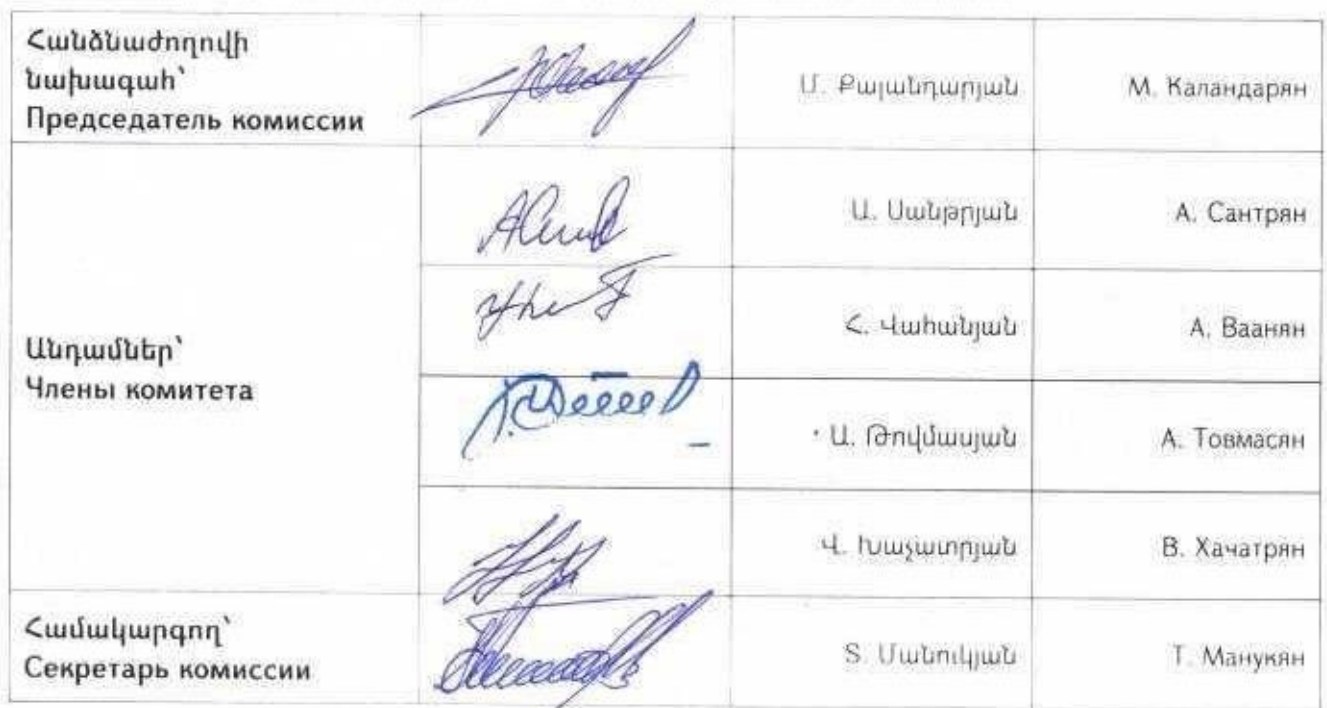 Հանձնաժողովի
նախագահ՝
Председатель комиссии
Մ. Քալանդարյան
М. Каландарян
Անդամներ՝
Члены комитета
Ա. Սանթրյան
А. Сантрян
Հ. Վահանյան
А. Ваанян
Ա. Թովմասյան
А. Товмасян
Վ. Խաչատրյան
В. Хачатрян
Համակարգող՝
Секретарь комиссии
Տ. Մանուկյան
Т. Манукян